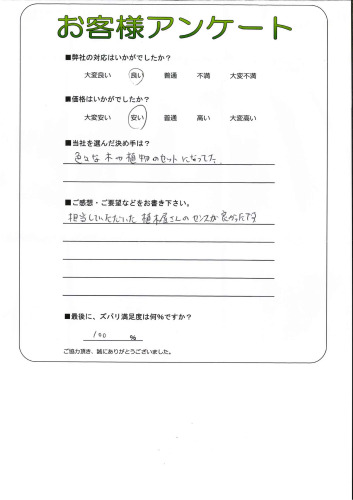 お客様アンケート
■弊社の対応はいかがでしたか？
大変良い 良い 普通 不満 大変不満
■価格はいかがでしたか？
大変安い 安い 普通 高い 大変高い
■当社を選んだ決め手は？
色々な木や植物のセットになってた。
■ご感想・ご要望などをお書き下さい。
担当していただいた 植木屋さんのセンスが良かったです
■最後に、ズバリ満足度は何%ですか？
100 %
ご協力頂き、誠にありがとうございました。